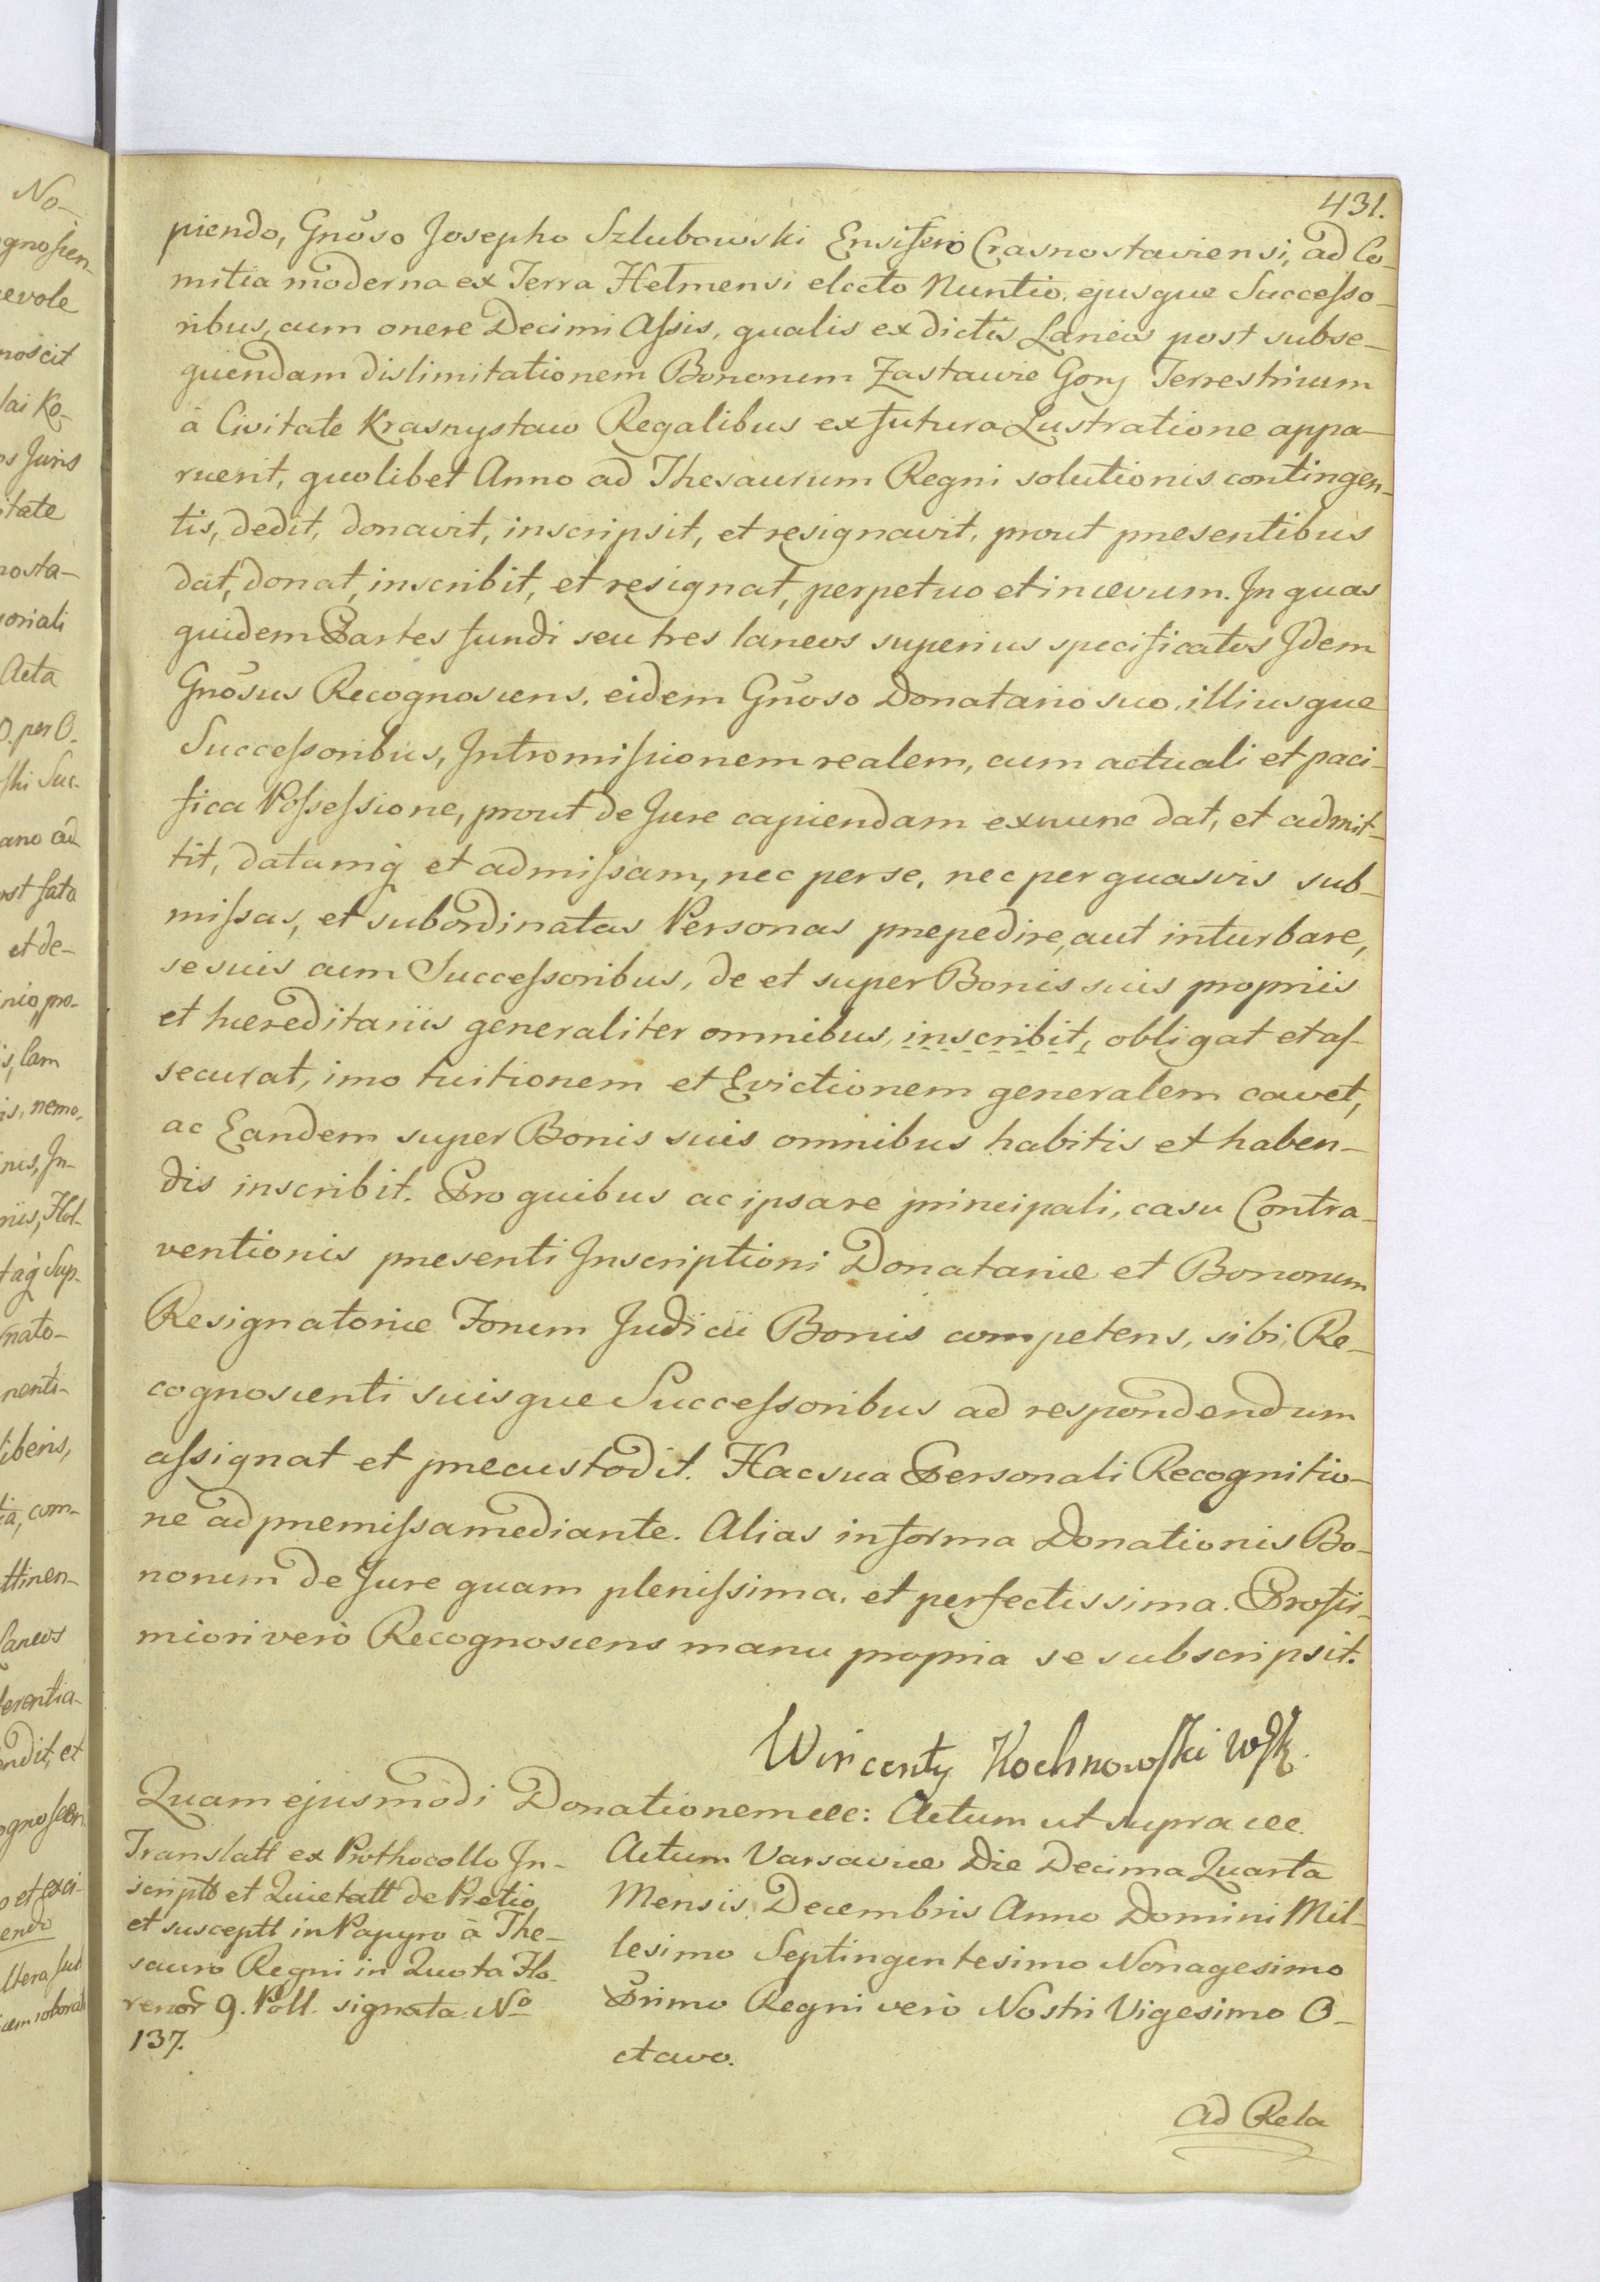 431.
piendo, Gnõso Josepho Szlubowski Ensifero Crasnostaviensi, ad Co-
mitia moderna ex Terra Helmensi electo Nuntio, ejusque Successo-
ribus, cum onere Decimi Assis, qualis ex dictis Laneis post subse-
quendam dislimitationem Bonorum Zastawie Gory Terrestrium
à Civitate Krasnystaw Regalibus ex futura Lustratione appa-
ruerit, quolibet Anno ad Thesaurum Regni solutionis contingen-
tis, dedit, donavit, inscripsit, et resignavit, prout præsentibus
dat, donat, inscribit, et resignat, perpetuo et in ævum. In quas
quidem Partes fundi seu tres laneos superius specificatos Idem
Gnõsus Recognoscens, eidem Gnõso Donatario suo, illiusque
Successoribus, Intromissionem realem, cum actuali et paci-
fica Possessione, prout de Jure capiendam exnunc dat, et admit-
tit, datamq̀ et admissam, nec per se, nec per quasvis sub-
missas, et subordinatas Personas præpedire, aut inturbare,
se suis cum Successoribus, de et super Bonis suis propriis
et hæreditariis generaliter omnibus, inscribit, obligat et as-
securat, imo tuitionem et Evictionem generalem cavet,
ac Eandem super Bonis suis omnibus habitis et haben-
dis inscribit. Pro quibus ac ipsa re principali, casu Contra-
ventionis præsenti Inscriptioni Donatariæ et Bonorum
Resignatoriæ Forum Judicii Bonis competens, sibi, Re-
cognoscenti suisque Successoribus ad respondendum
assignat et præcustodit. Hac sua Personali Recognitio-
ne ad præmissa mediante. Alias in forma Donationis Bo-
norum de Jure quam plenissima, et perfectissima. Pro fir-
miori verò Recognoscens manu propria se subscripsit.
Wincenty Kochnowski WSK.
Quam ejusmodi Donationem etc: Actum ut supra etc.
Translatt ex Prothocollo In-
scriptt et Quietatt de Pretio
et susceptt in Papyro à The-
sauro Regni in Quota Flo-
renor̃ 9. Poll. signata No
137.
Actum Varsaviæ Die Decima Quarta
Mensis Decembris Anno Domini Mil-
lesimo Septingentesimo Nonagesimo
Primo Regni verò Nostri Vigesimo O-
ctavo.
Ad Rela